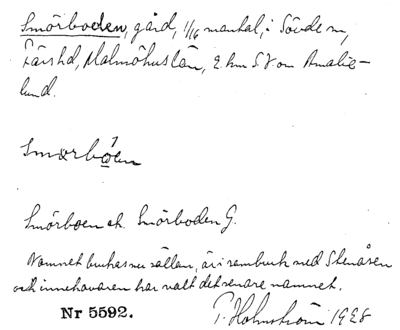 Smörboden, gård, 1/16 mantal, i Sövde sn,
Färs hd, Malmöhus län, 2 km S V om Amalie-
lund.
Smörboen
Smörboen el. Smörboden G.
Namnet brukas nu sällan, är i sambruk med Stenåsen
och innehavaren har valt det senare namnet.
Nr 5592.
P. Holmström 1928